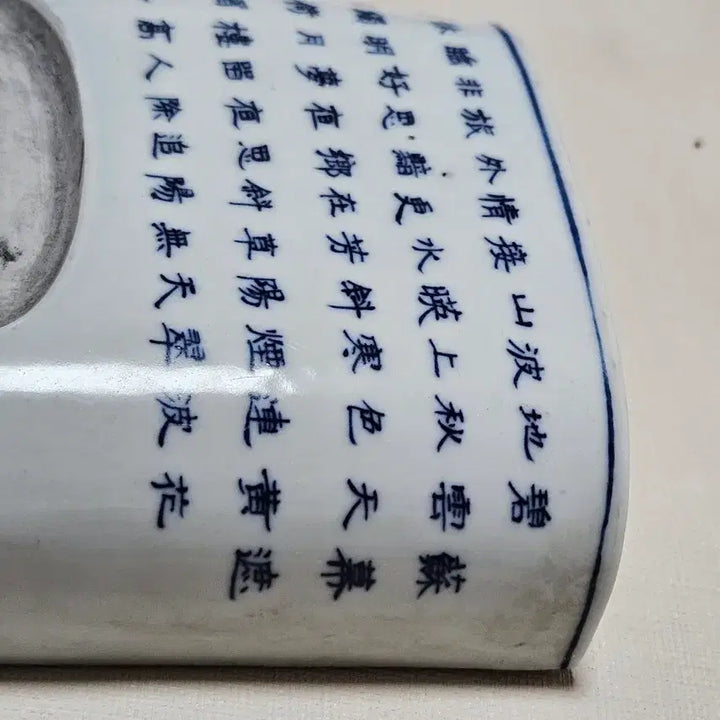 蘇幕遮
碧雲天黃花
地秋色連波
波上寒煙翠
山暎斜陽天
接水芳草無
情更在斜陽
外黯鄉思追
旅思夜夜除
非好夢留人
睡明月樓高